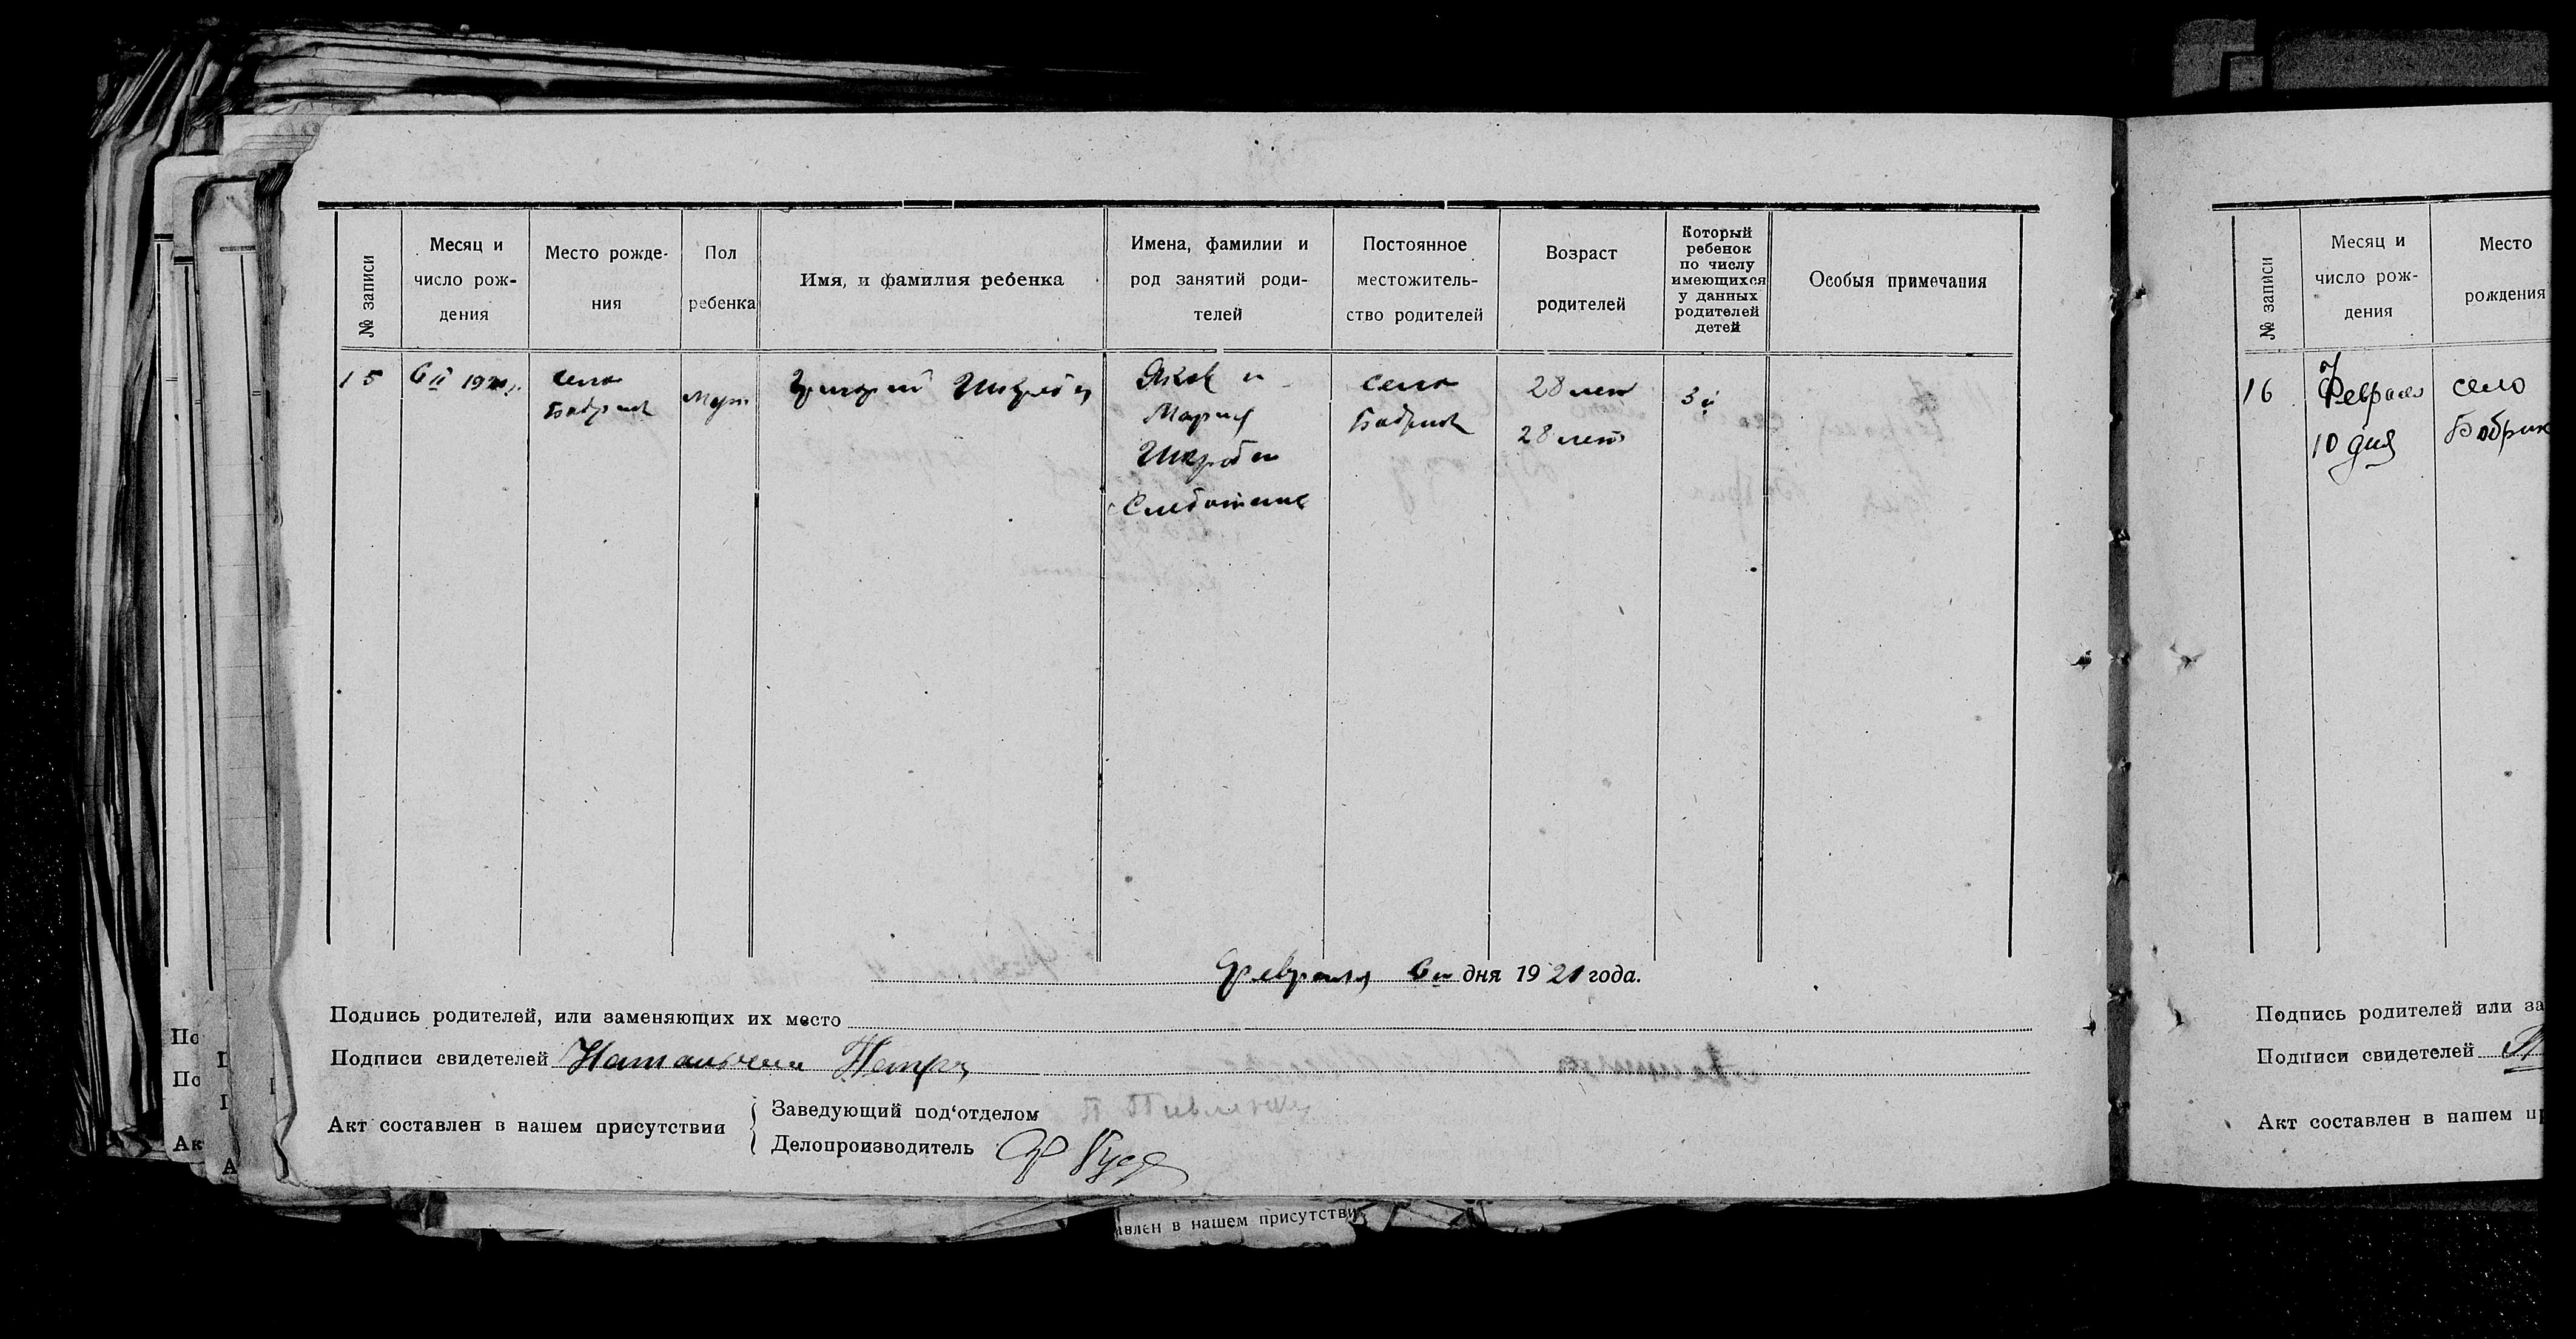 № записи
Месяц и
число рож-
дения
Место рожде-
ния
Пол
ребенка
Имя, и фамилия ребенка
Имена, фамилии и
род занятий роди-
телей
Постоянное
местожитель-
ство родителей
Возраст
родителей
Который
ребенок
по числу
имеющихся
у данных
родителей
детей
Особыя примечания
15
село
Бобрик
Григорий
Яков и
Мария
село
Бобрик
28 лет
28 лет
3й
Февраля 6го дня 1921 года.
Подпись родителей, или заменяющих их место
Подписи свидетелей Петро
Акт составлен в нашем присутствии
Заведующий под'отделом
Делопроизводитель
№ записи
Месяц и
число рож-
дения
Место
рождения
16
Февраля
10 дня
село
Бобрик
Подпись родителей или за
Подписи свидетелей
Акт составлен в нашем пр
По
По
Ак
авлен в нашем присутстви